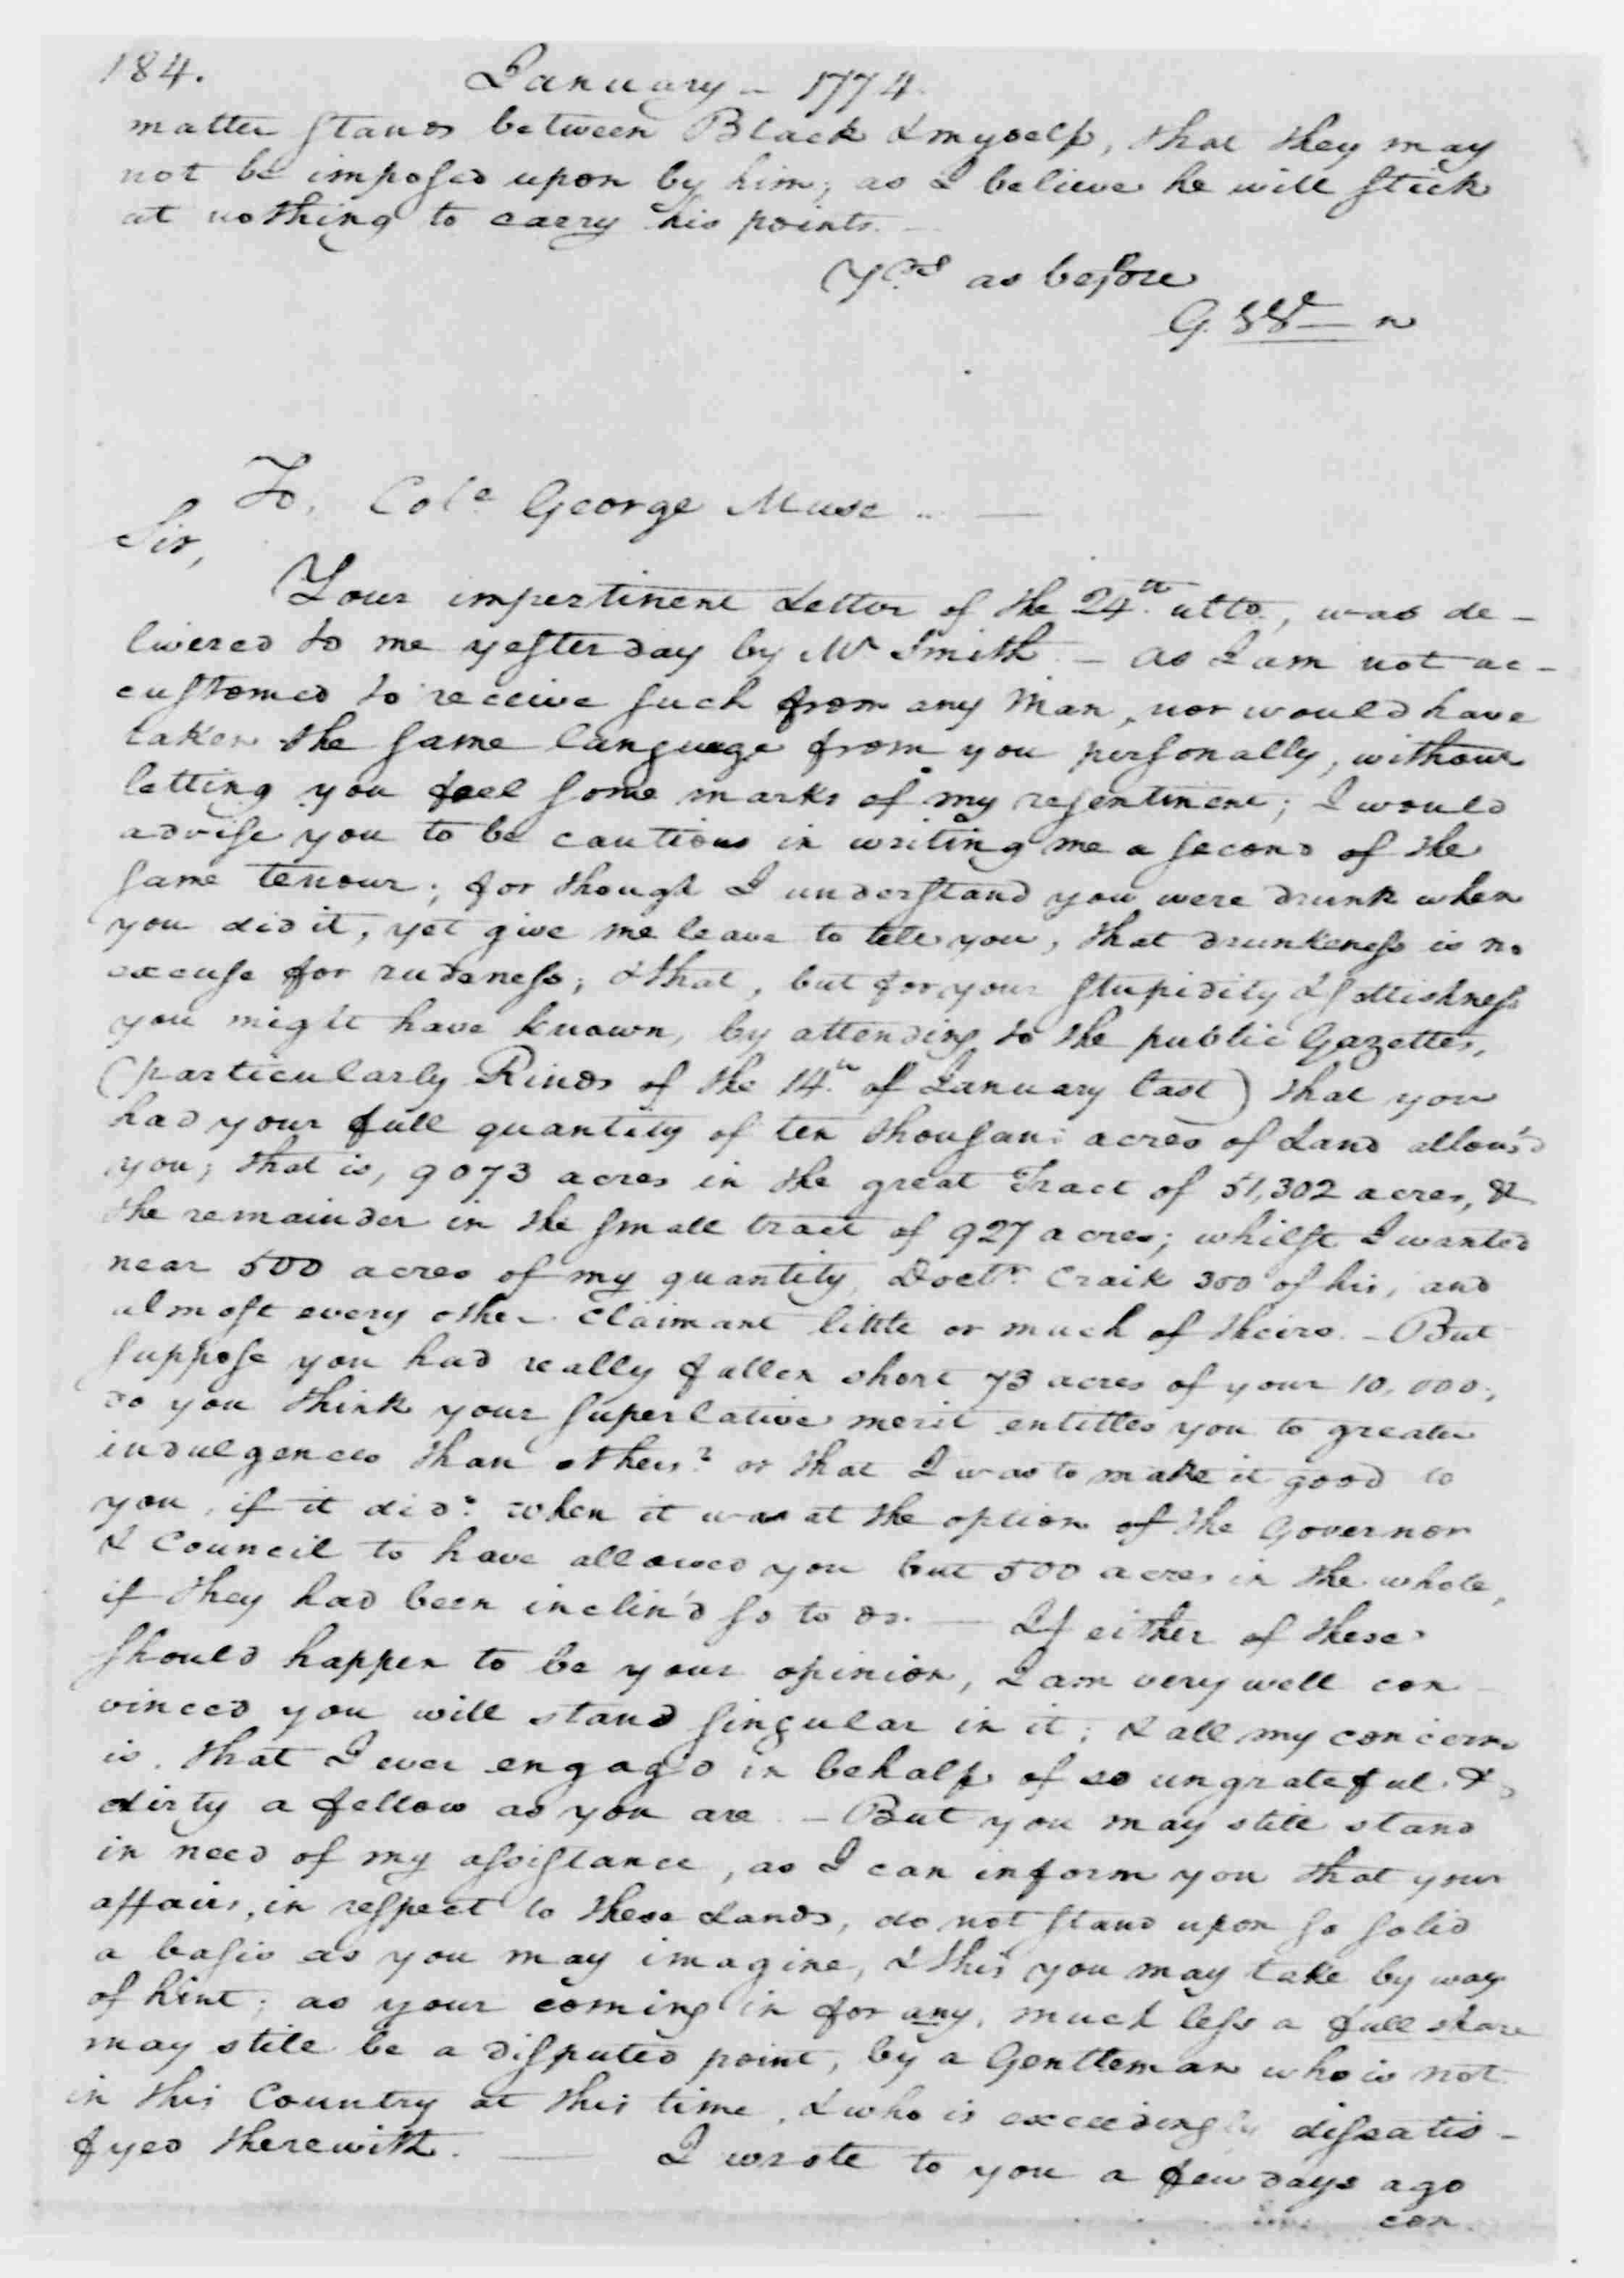 184.
January – 1774.
matter stands between Black & myself, that they may
not be imposed upon by him; as I believe he will stick
at nothing to carry his points. —
Yrs as before
G. W— n
To, Colo. George Muse .. —
Sir,
Your impertinent Letter of the 24th. ulto., was de-
livered to me yesterday by Mr Smith. – As I am not ac-
customed to receive such from any Man, nor would have
taken the same language from you personally, without
letting you feel some marks of my resentment; I would
advise you to be cautious in writing me a second of the
same tenour; for though I understand you were drunk when
you did it, yet give me leave to tell you, that drunkeness is no
excuse for rudeness; & that, but for your stupidity & sottishness
you might have known, by attending to the public Gazettes,
(particularly Rinds of the 14th. of January last) that you
had your full quantity of ten thousand acres of Land allow'd
you; that is, 9073 acres in the great Tract of 51,302 acres, &
the remainder in the small tract of 927 acres; whilst I wanted
near 500 acres of my quantity, Doctr. Craik 300 of his, and
almost every other claimant little or much of theirs. – But
suppose you had really fallen short 73 acres of your 10,000,
do you think your superlative merit entitles you to greater
indulgences than others? or that I was to make it good to
you, if it did? when it was at the option of the Governor
& Council to have allowed you but 500 acres in the whole,
if they had been inclin'd so to do. — If either of these
should happen to be your opinion, I am very well con-
vinced you will stand singular in it; & all my concern
is, that I ever engag'd in behalf of so ungrateful &
dirty a fellow as you are. – But you may still stand
in need of my assistance, as I can inform you that your
affairs, in respect to these Lands, do not stand upon so solid
a basis as you may imagine, & this you may take by way
of hint; as your coming in for any, much less a full share
may still be a disputed point, by a Gentleman who is not
in this Country at this time, & who is exceedingly dissatis-
fyed therewith. — I wrote to you a few days ago
con